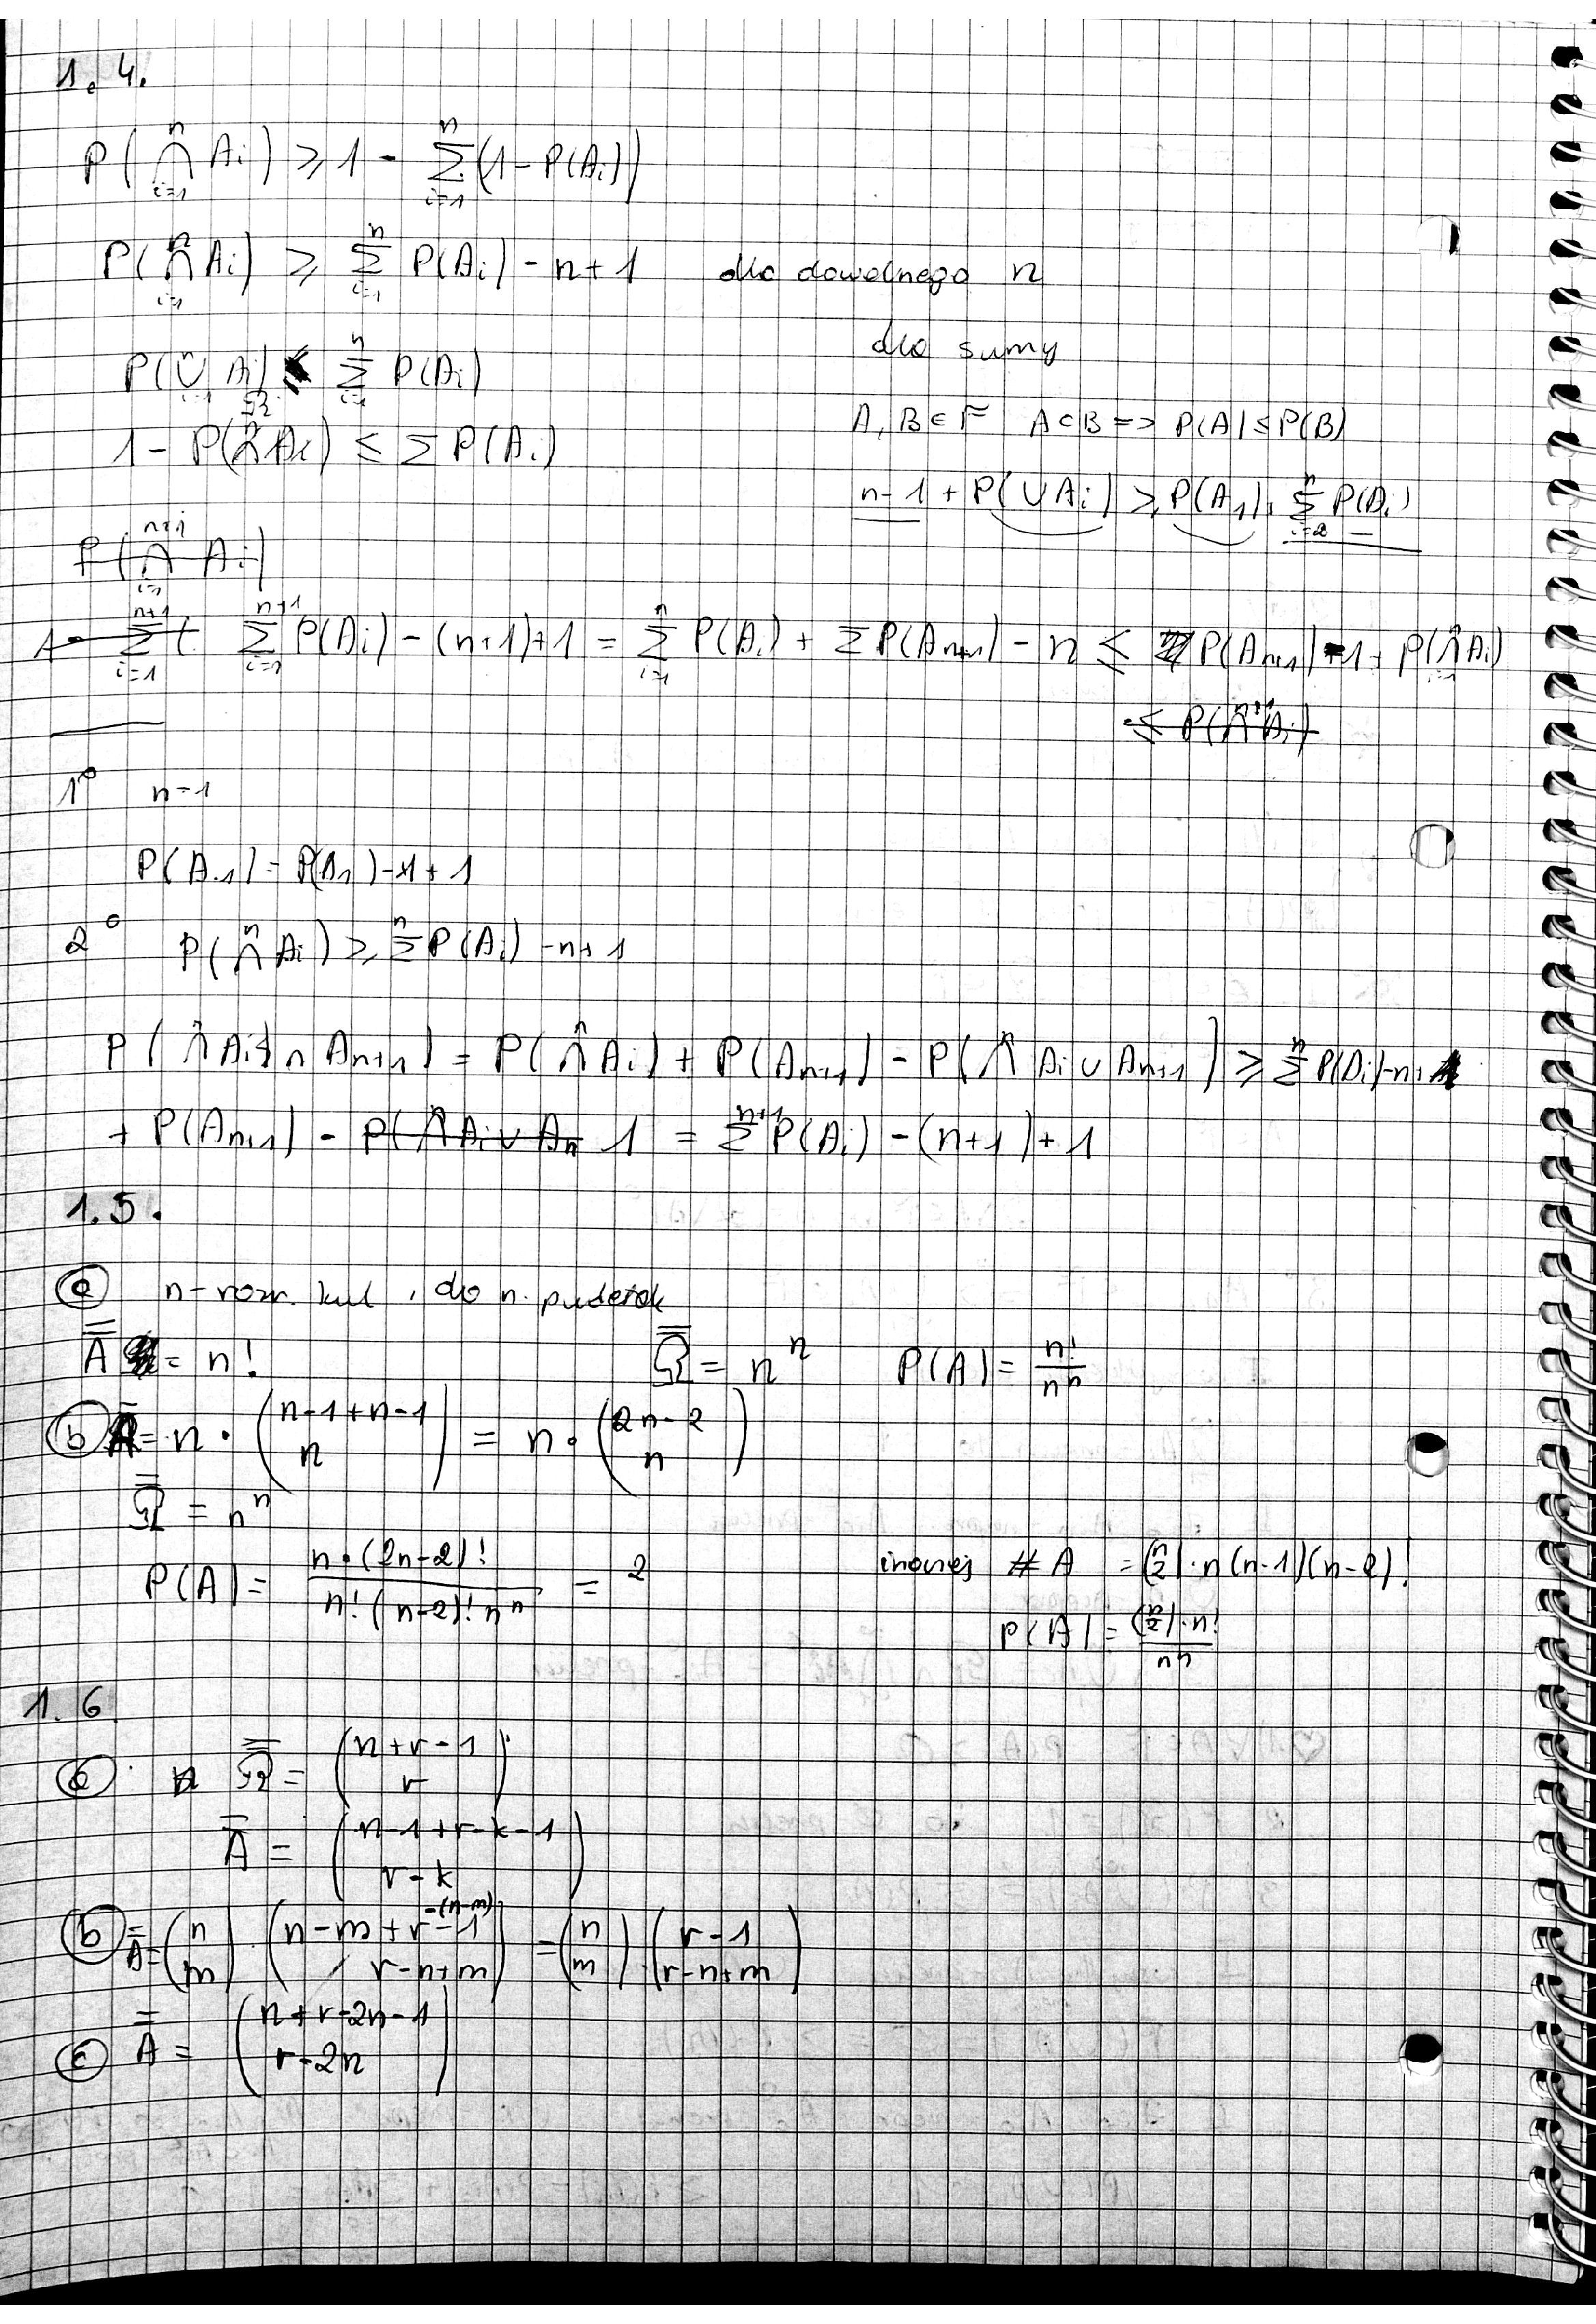 1.4.
P(⋂_{i=1}^{n} A_i) ≥ 1 - ∑_{i=1}^{n} (1 - P(A_i))
P(⋂_{i=1}^{n} A_i) ≥ ∑_{i=1}^{n} P(A_i) - n + 1 dla dowolnego n
dla sumy
P(⋃_{i=1}^{n} A_i) ≤ ∑_{i=1}^{n} P(A_i)
A, B ∈ F A ⊂ B => P(A) ≤ P(B)
1 - P(⋂^{n} A_i) ≤ ∑ P(A_i)
n - 1 + P(∪A_i) ≥ P(A_1) + ∑_{i=2}^{n} P(A_i)
P(⋂_{i=1}^{n+1} A_i)
1 - ∑_{i=1}^{n+1} ( ∑_{i=1}^{n+1} P(A_i) - (n+1) + 1 = ∑_{i=1}^{n} P(A_i) + ∑ P(A_{n+1}) - n ≤ P(A_{n+1}) - 1 + P(⋂_{i=1}^{n} A_i)
≤ P(⋂^{n+1} A_i)
1° n = 1
P(A_1) = P(A_1) - 1 + 1
2° P(⋂^{n} A_i) ≥ ∑^{n} P(A_i) - n + 1
P(⋂^{n} A_i ∩ A_{n+1}) = P(⋂^{n} A_i) + P(A_{n+1}) - P(⋂^{n} A_i ∪ A_{n+1}) ≥ ∑^{n} P(A_i) - n + 1
+ P(A_{n+1}) - P(⋂ A_i ∪ A_n 1 = ∑^{n+1} P(A_i) - (n+1) + 1
1.5.
(a) n - rozr. kul, do n. pudełek
A = n! Ω = n^n P(A) = n!/n^n
(b) A = n · (n-1+n-1 \choose n) = n · (2n-2 \choose n)
Ω = n^n
P(A) = n·(2n-2)! / n!(n-2)! n^n = 2
inaczej # A = (n \choose 2) · n(n-1)(n-2)!
P(A) = (n \choose 2)·n! / n^n
1.6
(a) Ω = (n+r-1 \choose r)
A = (n-1+r-k-1 \choose r-k)
(b) A = (n \choose m) · (n-m+r-1-(n-m) \choose r-n+m) = (n \choose m) · (r-1 \choose r-n+m)
(c) A = (n+r-2n-1 \choose r-2n)